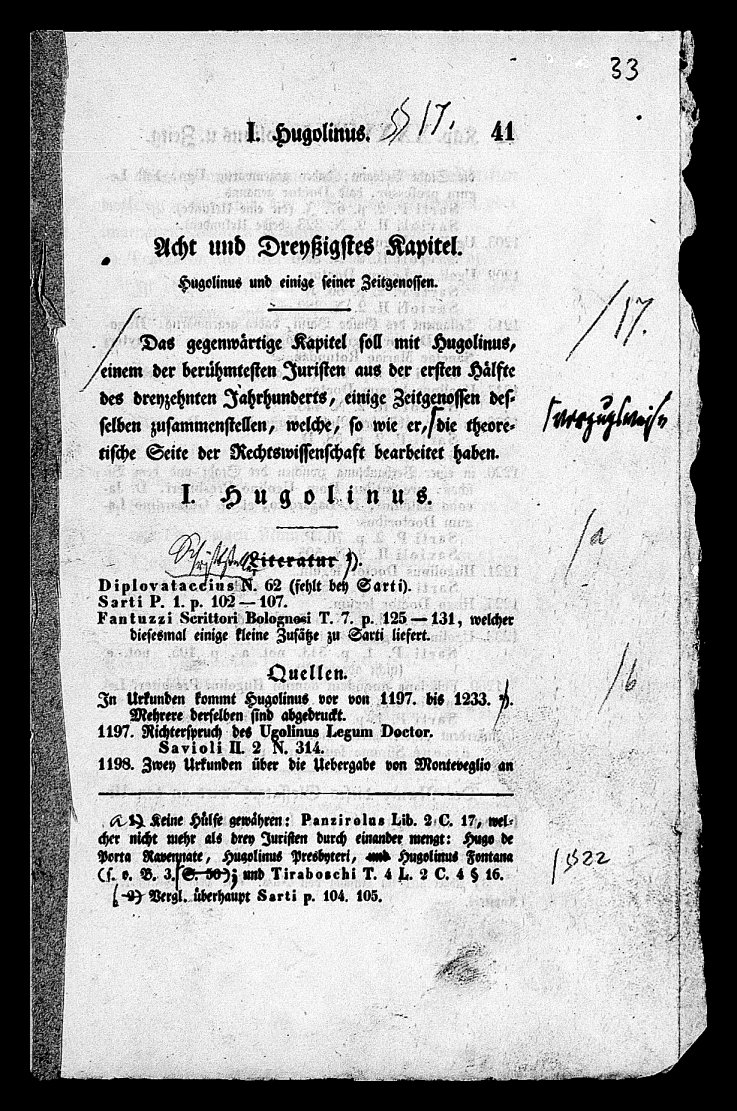 33
I. Hugolinus. §§ 17. 41
Acht und Dreyßigstes Kapitel.
Hugolinus und einige seiner Zeitgenossen.
/17.
Das gegenwärtige Kapitel soll mit Hugolinus,
einem der berühmtesten Juristen aus der ersten Hälfte
des dreyzehnten Jahrhunderts, einige Zeitgenossen des-
selben zusammenstellen, welche, so wie er, die theore- vorzugsweise
tische Seite der Rechtswissenschaft bearbeitet haben.
I. Hugolinus.
/a
Literatur 1).
Diplovataccius N. 62 (fehlt bey Sarti).
Sarti P. 1. p. 102 — 107.
Fantuzzi Scrittori Bolognesi T. 7. p. 125 — 131, welcher
diesesmal einige kleine Zusätze zu Sarti liefert.
Quellen.
/b
In Urkunden kommt Hugolinus vor von 1197. bis 1233. 2).
Mehrere derselben sind abgedruckt.
1197. Richterspruch des Ugolinus Legum Doctor.
Savioli II. 2 N. 314.
1198. Zwey Urkunden über die Uebergabe von Monteveglio an
a 1) Keine Hülfe gewähren: Panzirolus Lib. 2 C. 17, wel-
cher nicht mehr als drey Juristen durch einander mengt: Hugo de
Porta Ravennate, Hugolinus Presbyteri, und Hugolinus Fontana
(s. o. B. 3. S. 50); und Tiraboschi T. 4 L. 2 C. 4 § 16. /§ 22
2) Vergl. überhaupt Sarti p. 104. 105.